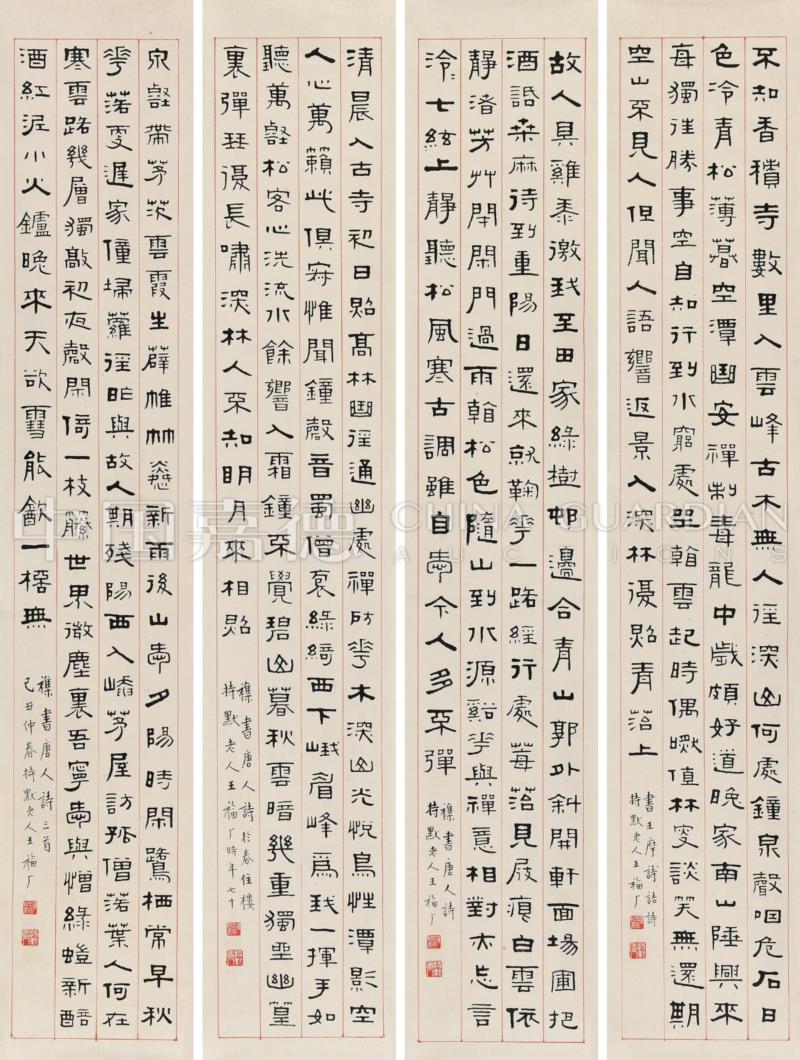 不知香積寺數里入雲峰古木無人徑深山何處鐘泉聲咽危石日
色冷青松薄暮空潭曲安禪制毒龍中歲頗好道晚家南山陲興來
每獨往勝事空自知行到水窮處坐看雲起時偶然值林叟談笑無還期
空山不見人但聞人語響返景入深林復照青苔上
書王摩詰詩
持默老人王福厂
故人具雞黍邀我至田家綠樹邨邊合青山郭外斜開軒面場圃把
酒話桑麻待到重陽日還來就鞠花一路經行處莓苔見屐痕白雲依
靜渚芳艸閉閑門過雨看松色隨山到水源谿花與禪意相對亦忘言
泠泠七絃上靜聽松風寒古調雖自愛今人多不彈
襍書唐人詩
持默老人王福厂
清晨入古寺初日照高林曲徑通幽處禪房花木深山光悅鳥性潭影空
人心萬籟此俱寂惟聞鐘聲音蜀僧袌綠綺西下峨眉峰為我一揮手如
聽萬壑松客心洗流水餘響入霜鐘不覺碧山暮秋雲暗幾重獨坐幽篁
裏彈琴復長嘯深林人不知明月來相照
襍書唐人詩於春住樓
持默老人王福厂時年七十
泉壑帶茅茨雲霞生薜帷竹憐新雨後山愛夕陽時閑鷺棲常早秋
花落更遲家僮掃蘿徑昨與故人期殘陽西入崦茅屋訪孤僧落葉人何在
寒雲路幾層獨敲初夜磬閑倚一枝藤世界微塵裏吾寧愛與憎綠螘新醅
酒紅泥小火鑪晚來天欲雪能飲一桮無
襍書唐人詩三首
己丑仲春持默老人王福厂
中国嘉德 CHINA GUARDIAN AUCTIONS